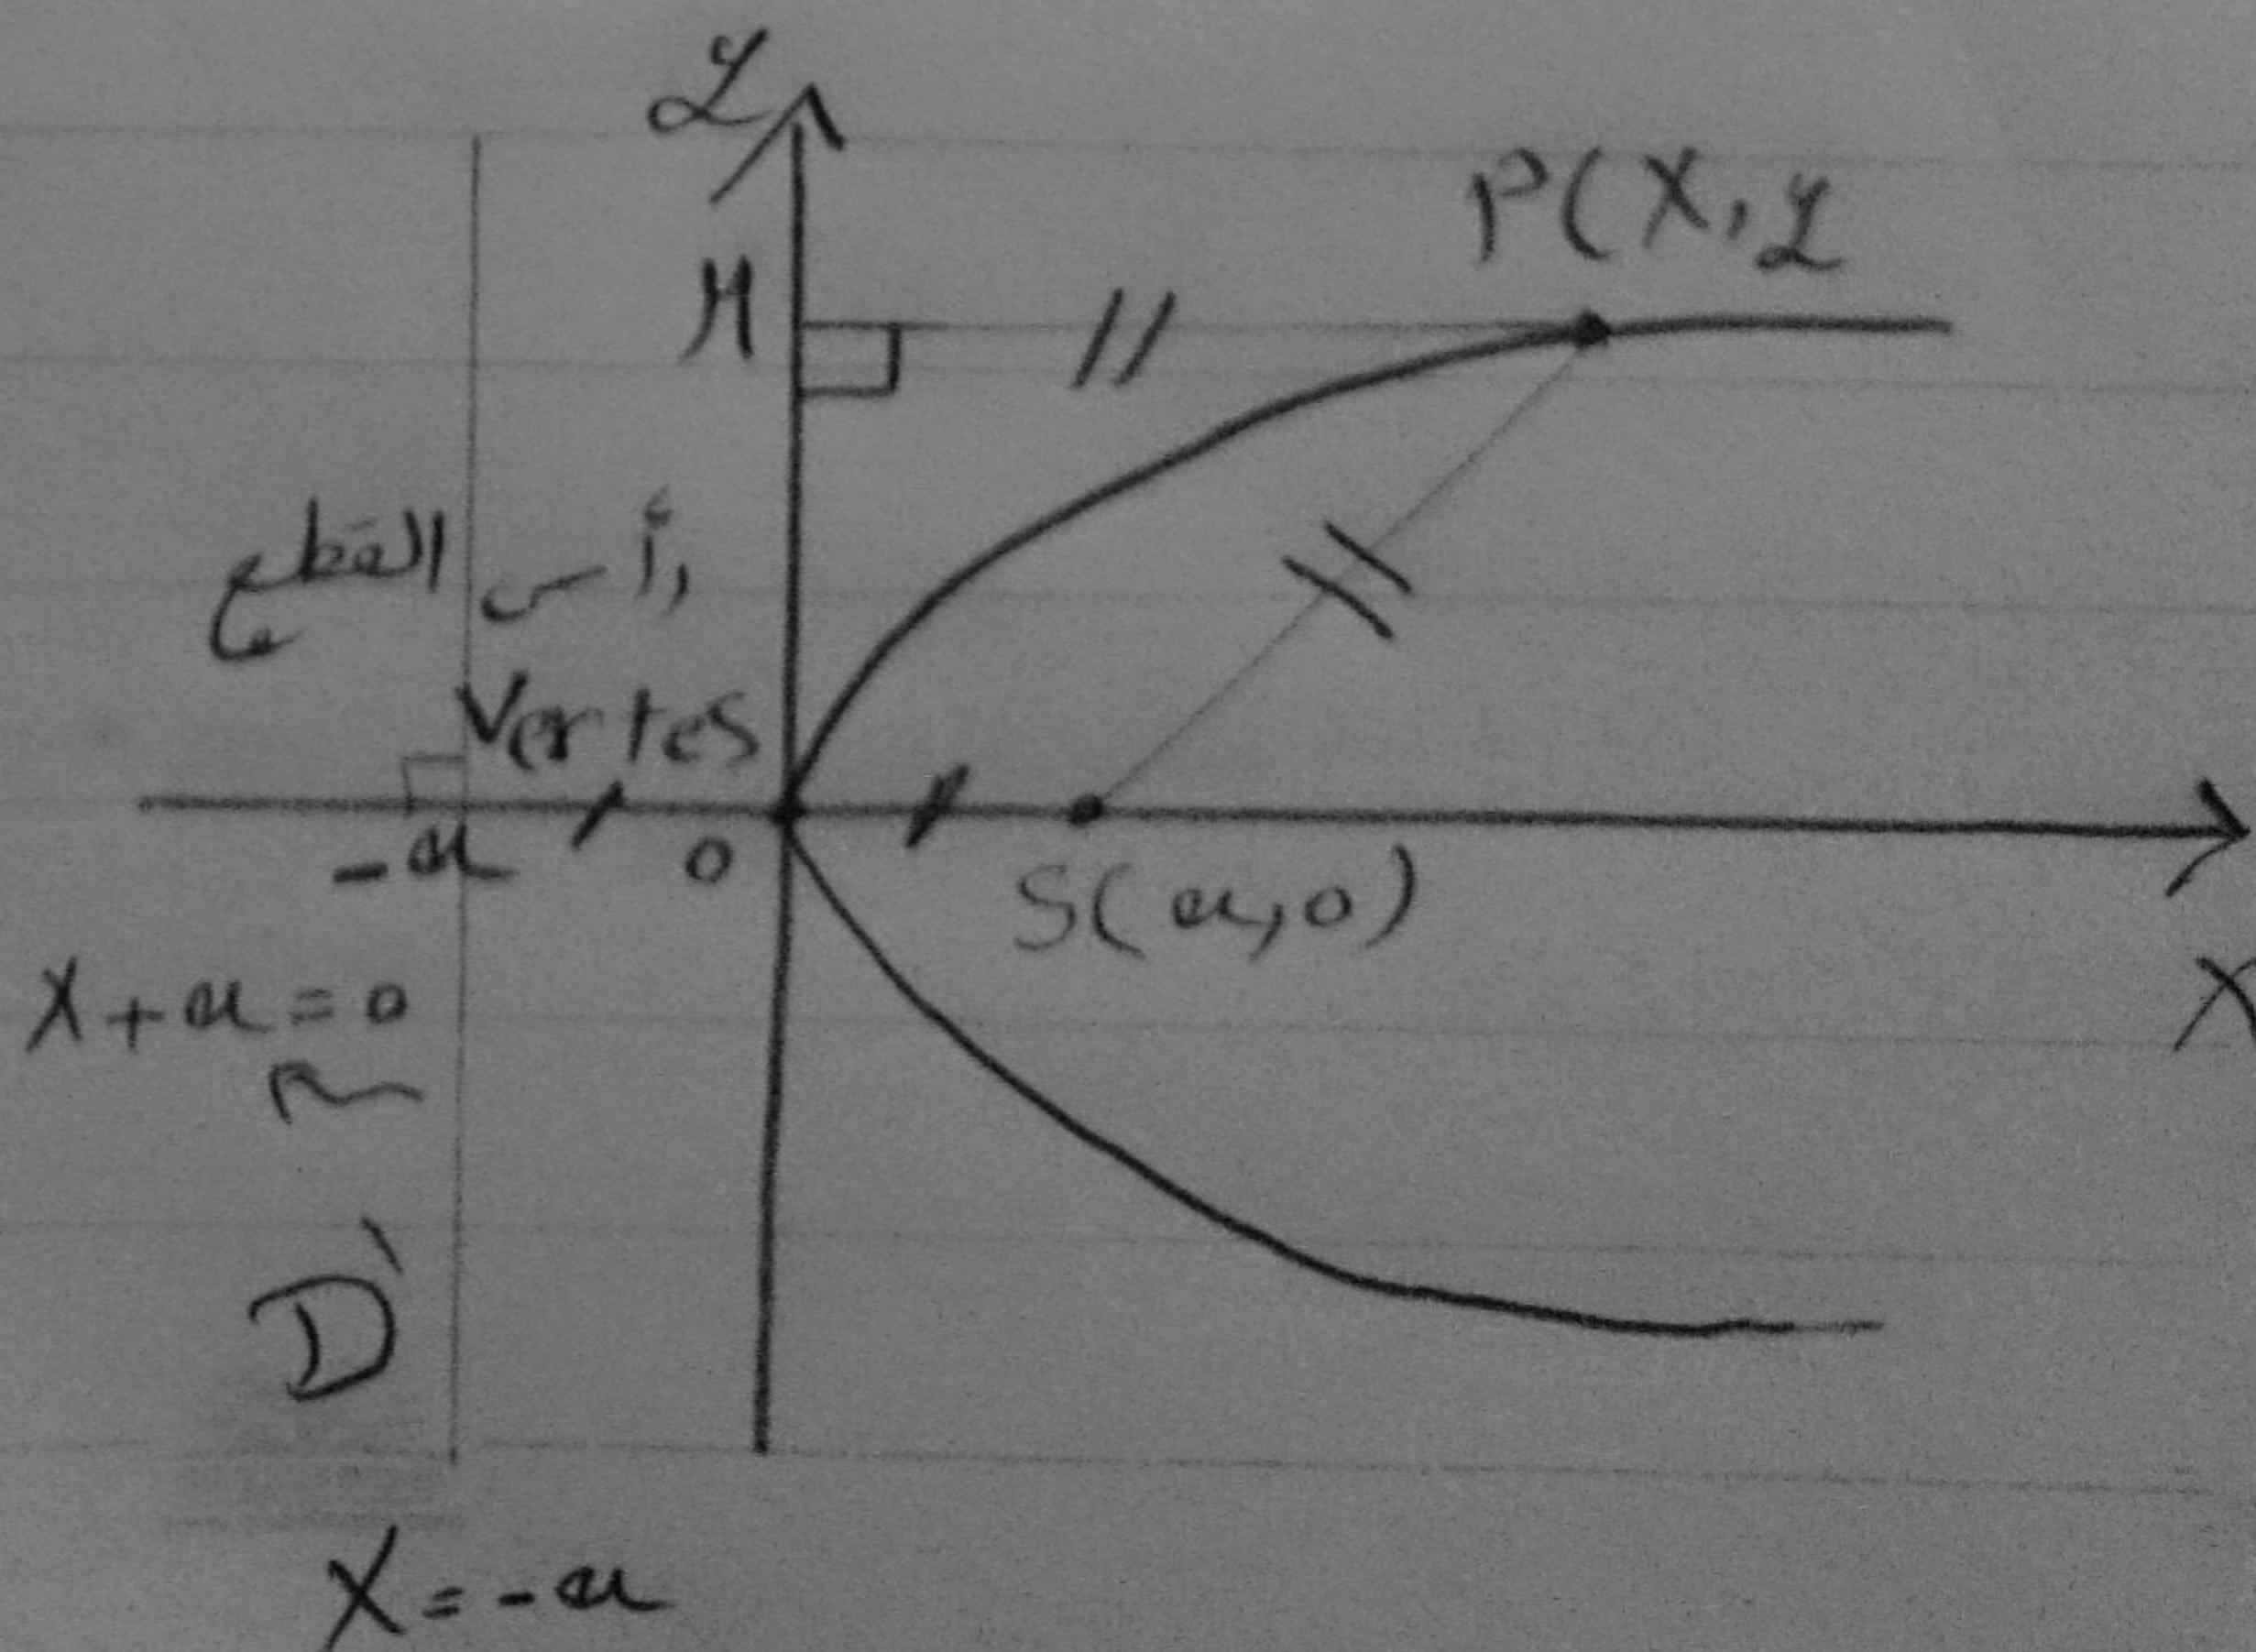 y
P(X,y
M
رأس القطع
Vertes
-a
o
S(a,o)
X+a=o
X
D'
X=-a